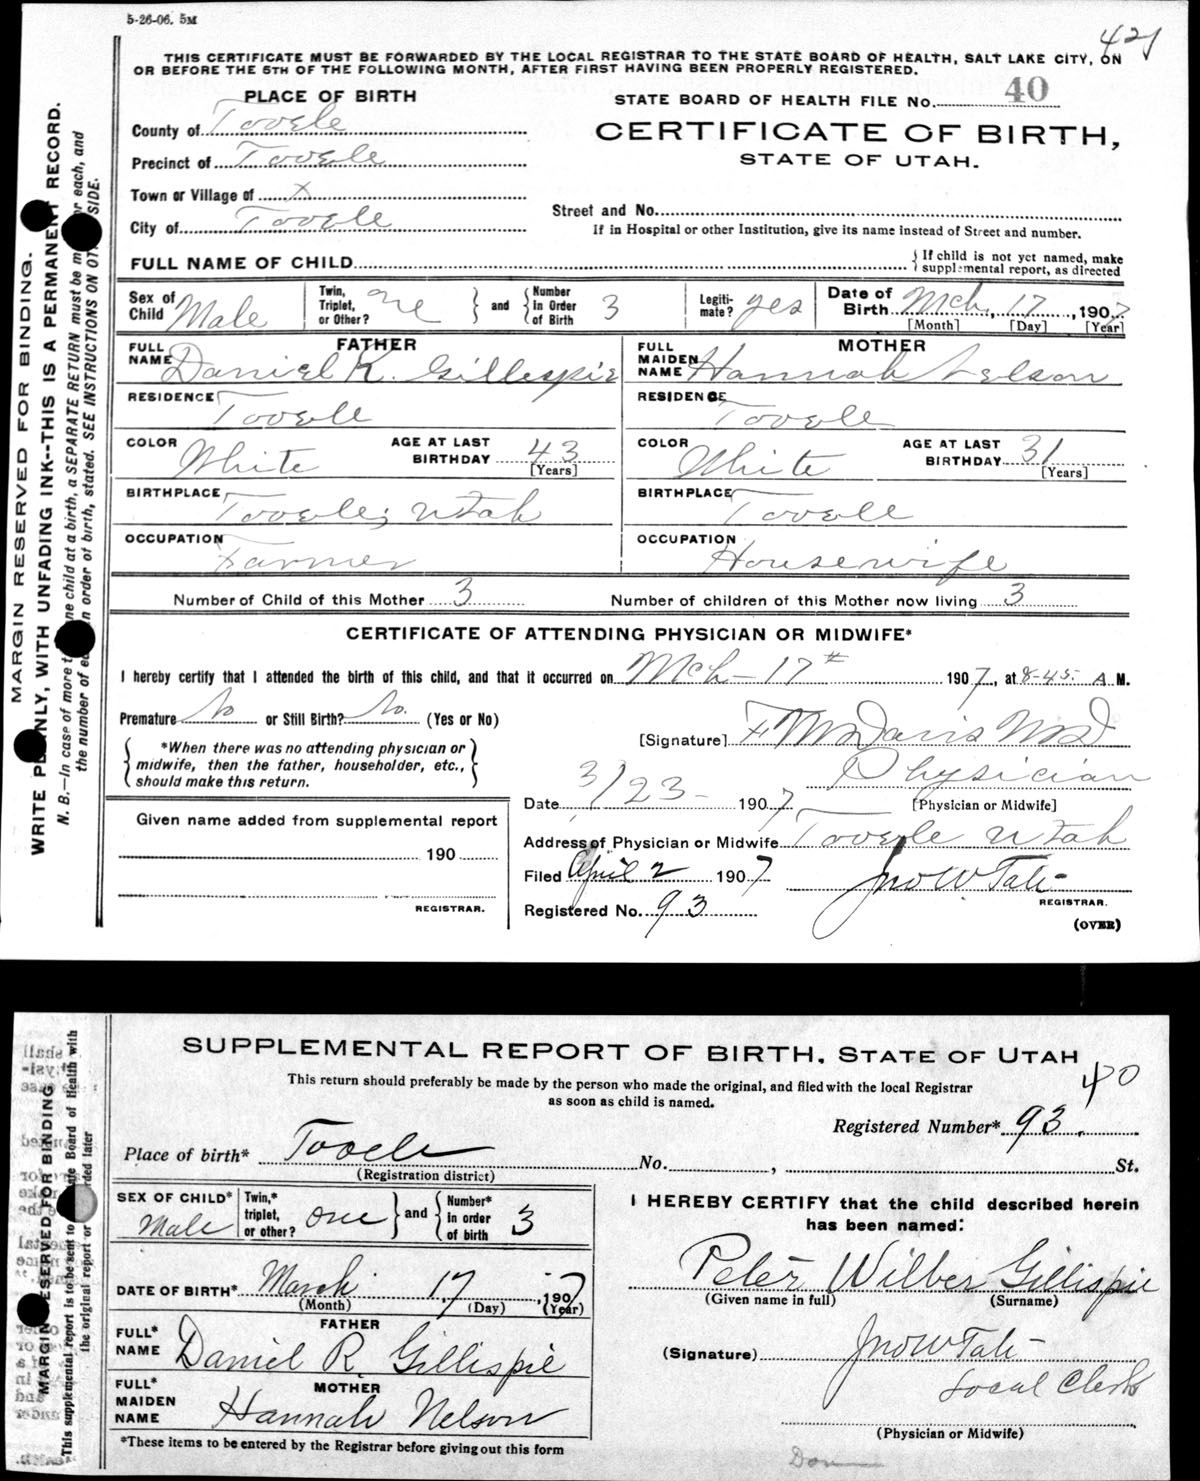 5-26-06. 5M
421
THIS CERTIFICATE MUST BE FORWARDED BY THE LOCAL REGISTRAR TO THE STATE BOARD OF HEALTH, SALT LAKE CITY, ON
OR BEFORE THE 5TH OF THE FOLLOWING MONTH, AFTER FIRST HAVING BEEN PROPERLY REGISTERED.
PLACE OF BIRTH
STATE BOARD OF HEALTH FILE NO. 40
County of Tooele
CERTIFICATE OF BIRTH,
STATE OF UTAH.
Precinct of Tooele
Town or Village of x
City of Tooele
Street and No.
If in Hospital or other Institution, give its name instead of Street and number.
FULL NAME OF CHILD
{ If child is not yet named, make
supplemental report, as directed
Sex of Child Male
Twin, Triplet, or Other? one } and { Number in Order of Birth 3
Legiti-mate? yes
Date of Birth Mch, 17, 1907
[Month] [Day] [Year]
FATHER
FULL NAME Daniel K. Gillespie
MOTHER
FULL MAIDEN NAME Hannah Nelson
RESIDENCE Tooele
RESIDENCE Tooele
COLOR White AGE AT LAST BIRTHDAY 43 [Years]
COLOR White AGE AT LAST BIRTHDAY 31 [Years]
BIRTHPLACE Tooele; Utah
BIRTHPLACE Tooele
OCCUPATION Farmer
OCCUPATION Housewife
Number of Child of this Mother 3 Number of children of this Mother now living 3
CERTIFICATE OF ATTENDING PHYSICIAN OR MIDWIFE*
I hereby certify that I attended the birth of this child, and that it occurred on Mch - 17th 1907, at 8-45 A. M.
Premature No or Still Birth? No. (Yes or No)
{ *When there was no attending physician or
midwife, then the father, householder, etc.,
should make this return. }
[Signature] F M Davis MD
Physician
[Physician or Midwife]
Date 3/23- 1907
Address of Physician or Midwife Tooele Utah
Filed April 2 1907 Jno W Tate
REGISTRAR.
Registered No. 93
(OVER)
Given name added from supplemental report
190
REGISTRAR.
MARGIN RESERVED FOR BINDING.
WRITE PLAINLY, WITH UNFADING INK--THIS IS A PERMANENT RECORD.
N. B.—In case of more than one child at a birth, a SEPARATE RETURN must be made for each, and
the number of each in order of birth, stated. SEE INSTRUCTIONS ON OTHER SIDE.
SUPPLEMENTAL REPORT OF BIRTH, STATE OF UTAH
This return should preferably be made by the person who made the original, and filed with the local Registrar
as soon as child is named.
40
Registered Number* 93.
Place of birth* Tooele No. , St.
(Registration district)
SEX OF CHILD* Male
Twin,* triplet, or other? one } and { Number* in order of birth 3
DATE OF BIRTH* March 17, 1907
(Month) (Day) (Year)
FATHER
FULL* NAME Daniel R. Gillispie
MOTHER
FULL* MAIDEN NAME Hannah Nelson
*These items to be entered by the Registrar before giving out this form
I HEREBY CERTIFY that the child described herein
has been named:
Peter Wilber Gillispie
(Given name in full) (Surname)
(Signature) Jno W Tate
Local Clerk
(Physician or Midwife)
MARGIN RESERVED FOR BINDING
This supplemental report is to be sent to State Board of Health with
the original report or